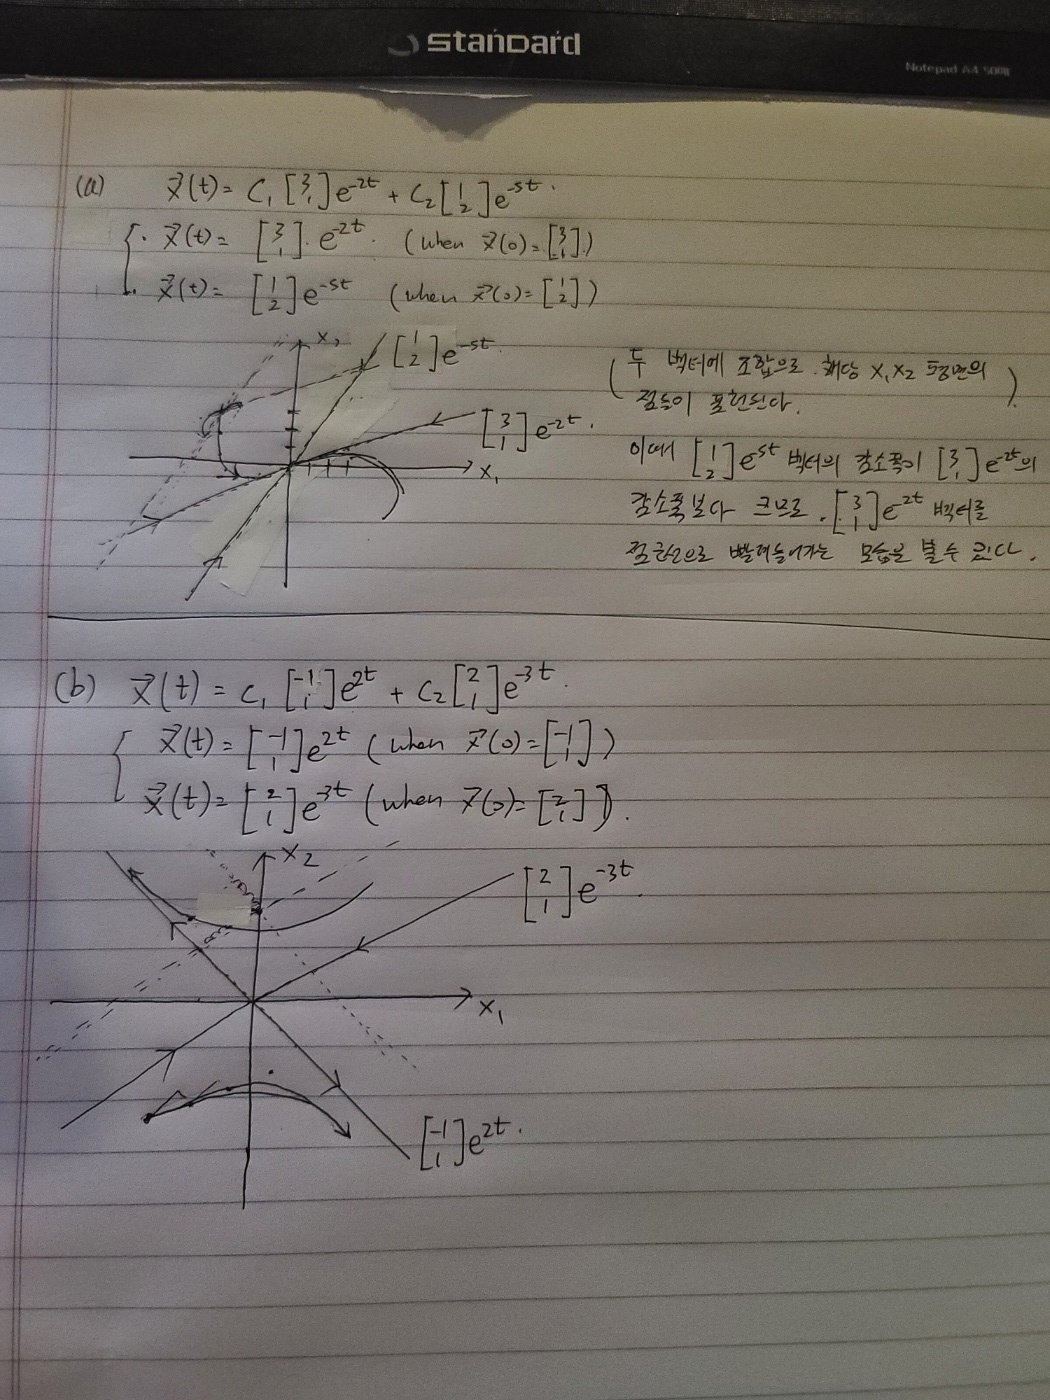 standard
Notepad A4 500매
(a) x⃗(t) = C₁ [3 1] e^-2t + C₂ [1 2] e^-5t.
x⃗(t) = [3 1]. e^-2t. (when x⃗(0) = [3 1].)
x⃗(t) = [1 2] e^-5t (when x⃗(0) = [1 2])
x₂
[1 2] e^-5t.
[3 1] e^-2t.
x₁
(두 벡터에 조합으로 해당 x₁x₂ 평면의
점들이 표현된다.)
이때 [1 2] e^-5t 벡터의 감소폭이 [3 1] e^-2t의
감소폭보다 크므로. [3 1] e^-2t 벡터를
점근선으로 빨려들어가는 모습을 볼 수 있다.
(b) x⃗(t) = C₁ [-1 1] e^2t + C₂ [2 1] e^-3t.
x⃗(t) = [-1 1] e^2t (when x⃗(0) = [-1 1])
x⃗(t) = [2 1] e^-3t (when x⃗(0) = [2 1]).
x₂
[2 1] e^-3t.
x₁
[-1 1] e^2t.